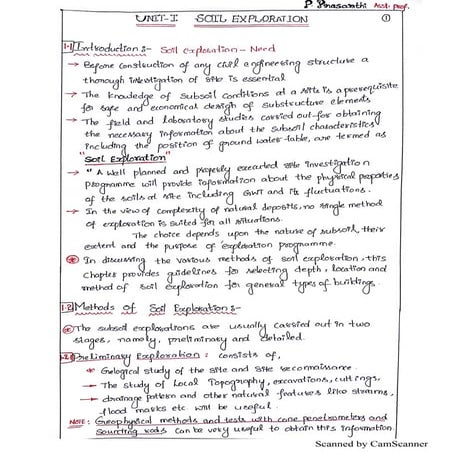 P Pinasanthi Asst. prof.
UNIT-I SOIL EXPLORATION ①
1.1 Introduction :- Soil exploration - Need
→ Before construction of any civil engineering structure a
thorough investigation of site is essential
→ The knowledge of subsoil conditions at a site is a prerequisite
for safe and economical design of substructure elements
→ The field and laboratory studies carried out for obtaining
the necessary information about the subsoil characteristics
including the position of ground water table, are termed as
"Soil Exploration"
→ "A Well planned and properly executed site investigation
programme will provide information about the physical properties
of the soils at site including GWT and its fluctuations.
→ In the view of complexity of natural deposits, no single method
of exploration is suited for all situations.
The choice depends upon the nature of subsoil, their
extent and the purpose of exploration programme.
* In discussing the various methods of soil exploration, this
Chapter provides guidelines for selecting depth, location and
method of soil exploration for general types of buildings.
1.2 Methods of Soil Exploration :-
* The subsoil explorations are usually carried out in two
stages, namely, preliminary and detailed.
Preliminary Exploration : consists of,
→ Gelogical study of the site and site reconnaissance.
→ The study of Local Topography, excavations, cuttings,
→ drainage pattern and other natural features like streams,
flood marks etc. will be useful.
NOTE: Geophysical methods and tests with cone penetrometers and
sounding rods can be very useful to obtain this information
Scanned by CamScanner